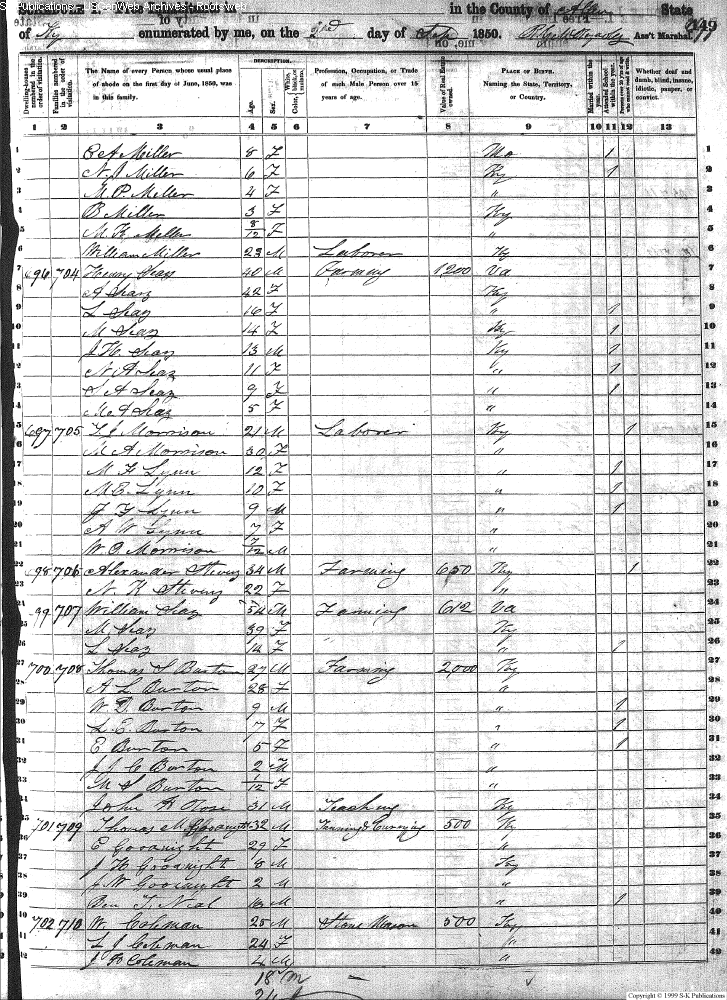 S-K Publications - USGenWeb Archives - Rootsweb
in the County of Allen State
of Ky enumerated by me, on the 2nd day of Sept 1850. Ass't Marshal.
Dwelling-houses numbered in the order of visitation.
Families numbered in the order of visitation.
The Name of every Person whose usual place of abode on the first day of June, 1850, was in this family.
DESCRIPTION.
Age.
Sex.
White, black, or mulatto. Color,
Profession, Occupation, or Trade of each Male Person over 15 years of age.
Value of Real Estate owned.
PLACE OF BIRTH. Naming the State, Territory, or Country.
Married within the year.
Attended School within the year.
Persons over 20 y'rs of age who cannot read & write.
Whether deaf and dumb, blind, insane, idiotic, pauper, or convict.
1 2 3 4 5 6 7 8 9 10 11 12 13
1 Miller 8 F Mo 1 1
2 N. J Miller 6 F Ky 1 2
3 M. P. Miller 4 F " 3
4 B Miller 3 F Ky 4
5 M. K Miller 8/12 F " 5
6 William Miller 23 M Laborer Ky 6
7 696 704 Henry Seay 40 M Farming 1200 Va 7
8 A Seay 42 F Ky 8
9 L Seay 16 F " 1 9
10 M Seay 14 F Ky 1 10
11 J H Seay 13 M Ky 1 11
12 N A Seay 11 F " 1 12
13 S A Seay 9 F " 1 13
14 M A Seay 5 F " 14
15 697 705 Morrison 21 M Laborer Ky 1 15
16 M A Morrison 30 F " 16
17 M F Lynn 12 F " 1 17
18 M E Lynn 10 F " 1 18
19 Lynn 9 M " 1 19
20 A W Lynn 7 F " 20
21 W. O Morrison 7/12 M " 21
22 98 706 Alexander Stevens 34 M Farming 650 Ky 1 22
23 N. K Stevens 22 F " 23
24 99 707 William Seay 54 M Farming 612 Va 24
25 M Seay 39 F Ky 25
26 L Seay 14 F " 1 26
27 700 708 Thomas S Burton 27 M Farming 2000 Ky 27
28 A L Burton 28 F " 28
29 W. D. Burton 9 M " 1 29
30 L. E. Burton 7 F " 1 30
31 E Burton 5 F " 1 31
32 J. J. C Burton 2 M " 32
33 M S Burton 1/12 F " 33
34 John 31 M Teaching Ky 34
35 701 709 Thomas M Goodnight 32 M Tanning & Currying 500 Ky 35
36 E Goodnight 29 F " 36
37 J H Goodnight 8 M Ky 37
38 J. W Goodnight 2 M " 38
39 Ben F Neal 16 M " 1 39
40 702 710 W. Coleman 25 M Stone Mason 500 Ky 40
41 L J Coleman 24 F " 41
42 Coleman 4 M " 42
18 m
24 f
Copyright © 1999 S-K Publications